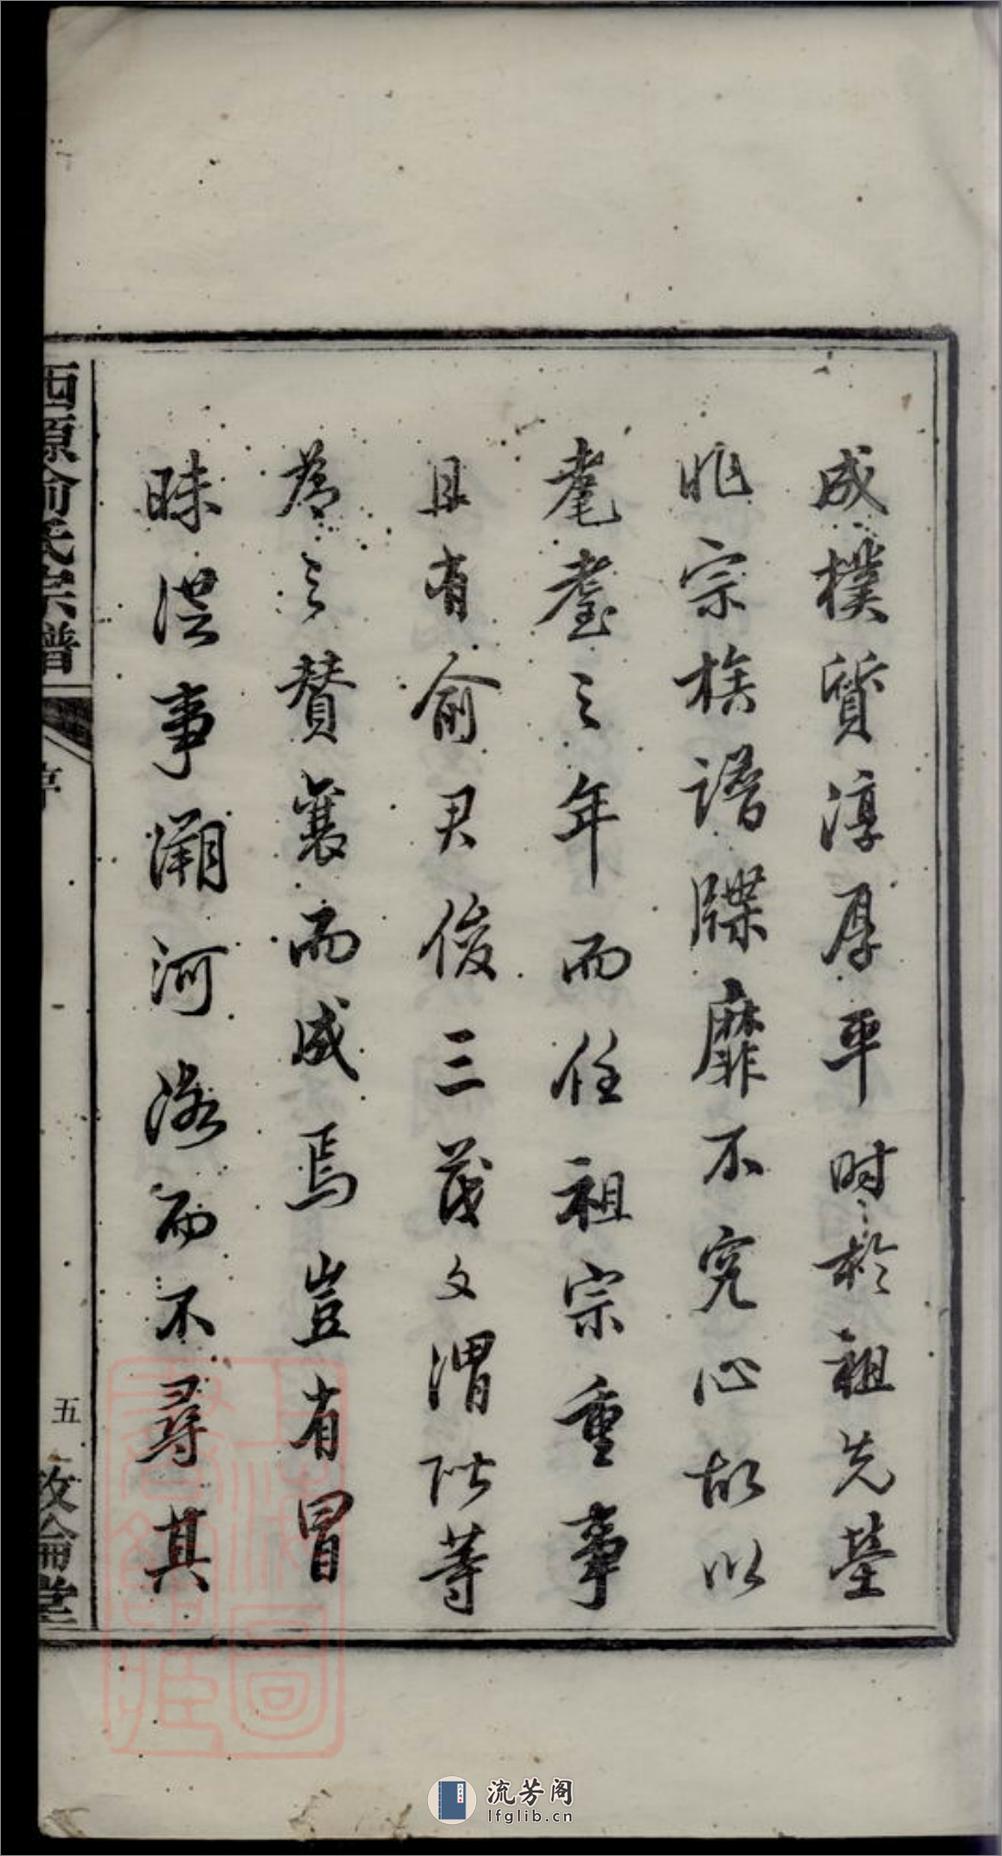 成樸質淳厚平時於祖先塋
兆宗族譜牒靡不究心故以
耄耋之年而任祖宗重事
且有俞君俊三茂文渭階等
為之贊襄而成焉豈有冒
昧從事溯河洛而不尋其
西原俞氏宗譜
序
五
敦倫堂
上海圖書館藏
流芳阁
lfglib.cn